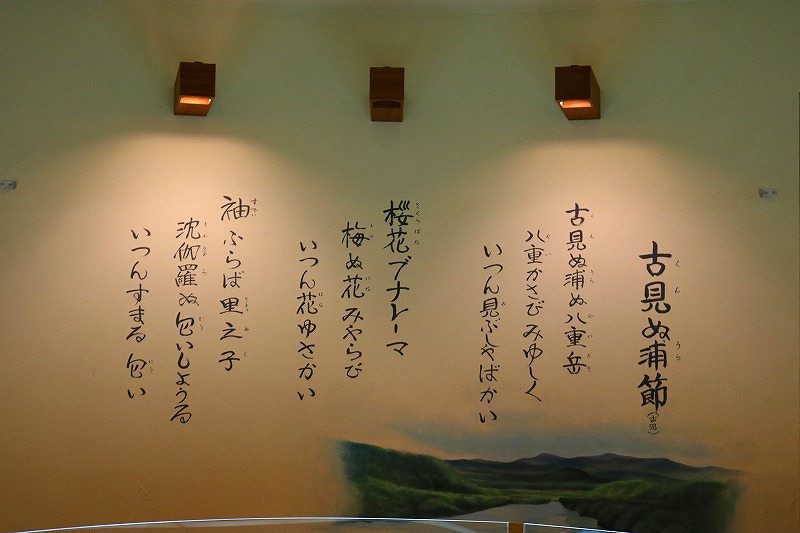 古見ぬ浦節（古見）
古見ぬ浦ぬ八重岳
八重かさびみゆしく
いつん見ぶしやばかい
桜花ブナレーマ
梅ぬ花みやらび
いつん花ゆさかい
袖ふらば里之子
沈伽羅ぬ匂いしようる
いつんすまる匂い